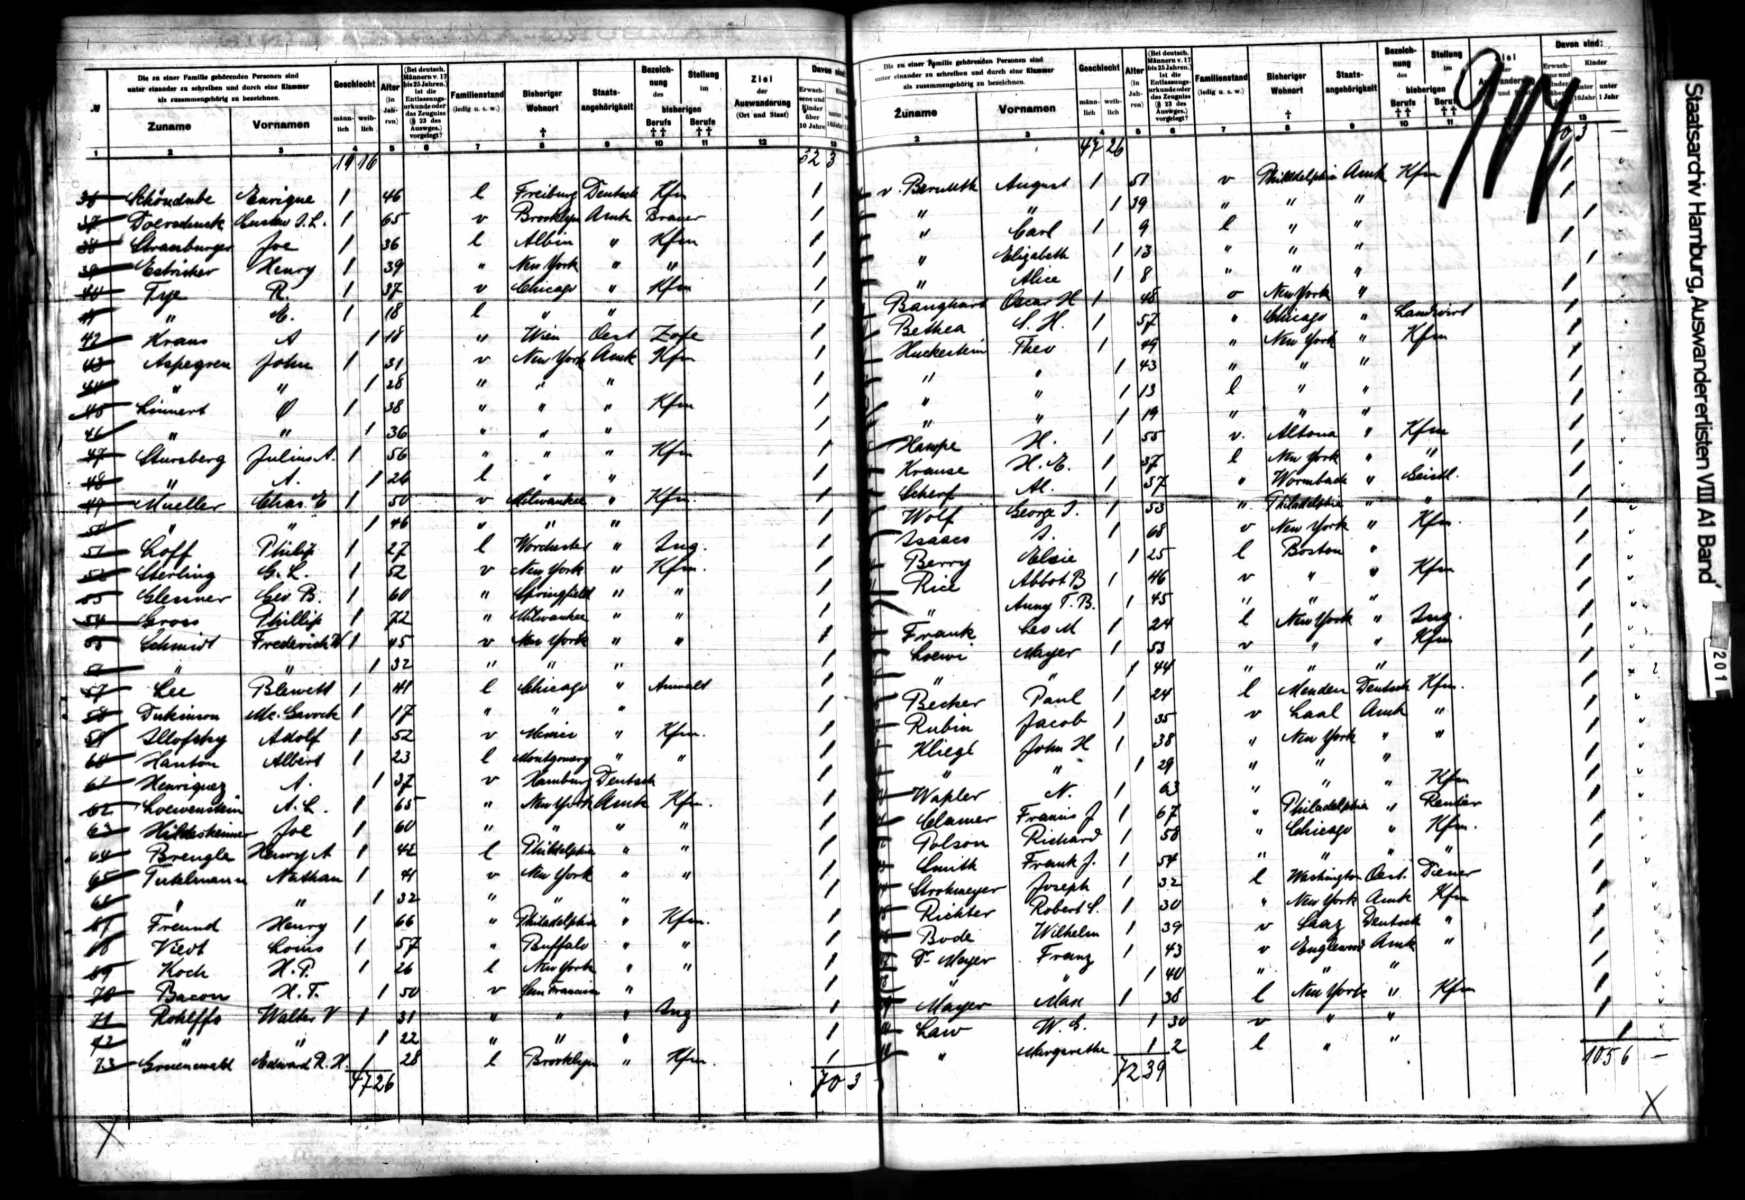 Die zu einer Familie gehörenden Personen sind unter einander zu schreiben und durch eine Klammer als zusammengehörig zu bezeichnen.
№ Zuname Vornamen Geschlecht männlich weiblich Alter (in Jahren) Familienstand (ledig u. s. w.) Bisheriger Wohnort Staatsangehörigkeit Bezeichnung des Stellung im bisherigen Berufe Berufe Ziel der Auswanderung (Ort und Staat) Davon sind:
1 2 3 4 5 6 7 8 9 10 11 12 13
19 16 52 3
36 Schöndube Enrique 1 46 l Freiburg Deutsch Kfm 1
37 Gustav S. L. 1 65 v Brooklyn Amk Brauer 1
38 Strassburger Joe 1 36 l Albin " Kfm 1
39 Estricher Henry 1 39 " New York " " 1
40 Frye R. 1 37 v Chicago " Kfm 1
41 " E. 1 18 l " " 1
42 Kraus A 1 18 " Wien Oest Zofe 1
43 Aspegren John 1 31 v New York Amk Kfm 1
44 " " 1 28 " " " 1
45 Linnert 1 38 " " " Kfm 1
46 " " 1 36 " " " 1
47 Stursberg Julius A. 1 56 " " " Kfm 1
48 " A. 1 26 l " " 1
49 Mueller Chas E 1 50 v Milwaukee " Kfm. 1
50 " " 1 46 " " " 1
51 Loff Philip 1 27 l Worchester " Ing. 1
52 Sterling G. L. 1 52 v New York " Kfm. 1
53 Glenner Geo B. 1 60 " Springfield " " 1
54 Gross Phillip 1 72 " Milwaukee " " 1
55 Schmidt Frederick W 1 45 v New York " " 1
56 " " 1 32 " " " 1
57 Lee Blewett 1 41 l Chicago " Anwalt 1
58 Dickinson Mc. Gavock 1 17 " " " 1
59 Illofsky Adolf 1 52 v " Kfm. 1
60 Hanton Albert 1 23 l Montgomery " " 1
61 Henriquez A. 1 37 v Hamburg Deutsch 1
62 Loewenstein A. L. 1 65 " New York Amk Kfm. 1
63 Hildesheimer Joe 1 60 " " " " 1
64 Brengle Henry A 1 42 l Philadelphia " " 1
65 Nathan 1 41 v New York " " 1
66 " " 1 32 " " " 1
67 Freund Henry 1 66 " Philadelphia " Kfm. 1
68 Viedt Louis 1 57 " Buffalo " " 1
69 Koch H. P. 1 26 l New York " " 1
70 Bacon H. T. 1 50 v San Francisco " 1
71 Rohlffs Walter V 1 31 " " " Ing 1
72 " " 1 22 " " " 1
73 Gruenewald Edward R. H. 1 28 l Brooklyn " Kfm. 1
47 26 70 3
X
Die zu einer Familie gehörenden Personen sind unter einander zu schreiben und durch eine Klammer als zusammengehörig zu bezeichnen.
Zuname Vornamen Geschlecht männlich weiblich Alter (in Jahren) Familienstand (ledig u. s. w.) Bisheriger Wohnort Staatsangehörigkeit Bezeichnung des Stellung im bisherigen Berufe Berufe Davon sind:
2 3 4 5 6 7 8 9 10 11 13
47 26 70 3
v. Bernuth August 1 51 v Philadelphia Amk Kfm 1
" " 1 39 " " " 1
" Carl 1 9 l " " 1
" Elizabeth 1 13 " " " 1
" Alice 1 8 " " " 1
Banghart Oscar H 1 48 v New York " 1
Bethea S. H. 1 57 " Chicago " Landwirt 1
Huckestein Theo 1 49 " New York " Kfm 1
" " 1 43 " " " 1
" " 1 13 l " " 1
" " 1 19 " " " 1
Hampe H. 1 55 v. Altona " Kfm 1
Krause H. E. 1 37 l New York " " 1
Scherf Al. 1 57 " Wormbach " Geistl. 1
Wolf George J. 1 53 " Philadelphia " " 1
Isaacs S. 1 68 v New York " Kfm. 1
Berry Elsie 1 25 l Boston " 1
Rice Abbot B 1 46 v " " Kfm 1
" Anny T. B. 1 45 " " " 1
Frank Leo M 1 24 l New York " Ing. 1
Loewi Mayer 1 53 v " " Kfm 1
" " 1 44 " " " 1
Becker Paul 1 24 l Menden Deutsch Kfm. 1
Rubin Jacob 1 35 v Laal Amk " 1
Kliegl John H 1 38 " New York " " 1
" " 1 29 " " " 1
Wapler N. 1 63 " " " Kfm 1
Clamer Francis J 1 67 " Philadelphia " Rentier 1
Polson Richard 1 58 " Chicago " Kfm. 1
Smith Frank J. 1 54 " " " " 1
Strohmeyer Joseph 1 32 l Washington Oest. Diener 1
Richter Robert L. 1 30 " New York Amk Kfm 1
Bode Wilhelm 1 39 v Saaz Deutsch " 1
Dr. Mayer Franz 1 43 v Englewood Amk " 1
" " 1 40 " " " 1
Mayer Max 1 38 l New York " Kfm 1
Law W. E. 1 30 v " " 1
" Margarethe 1 2 l " " 1
72 39 105 6 —
X
Staatsarchiv Hamburg, Auswandererlisten VIII A1 Band
201